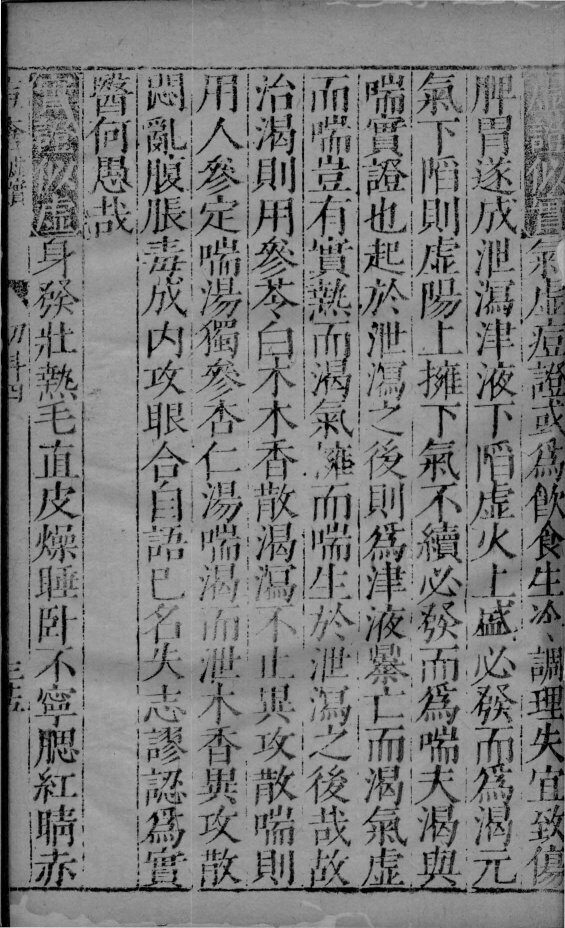 虛證似實氣虛痘證或爲飲食生冷調理失宜致傷
脾胃遂成泄瀉津液下陷虛火上盛必發而爲渴元
氣下陷則虛陽上擁下氣不續必發而爲喘夫渴與
喘實證也起於泄瀉之後則爲津液暴亡而渴氣虛
而喘豈有實熱而渴氣擁而喘生於泄瀉之後哉故
治渴則用參苓白术木香散渴瀉不止異攻散喘則
用人參定喘湯獨參杏仁湯喘渴而泄木香異攻散
悶亂腹脹毒成內攻眼合自語已名失志謬認爲實
醫何愚哉
實證似虛身發壯熱毛直皮燥睡卧不寧腮紅睛赤
幼科四